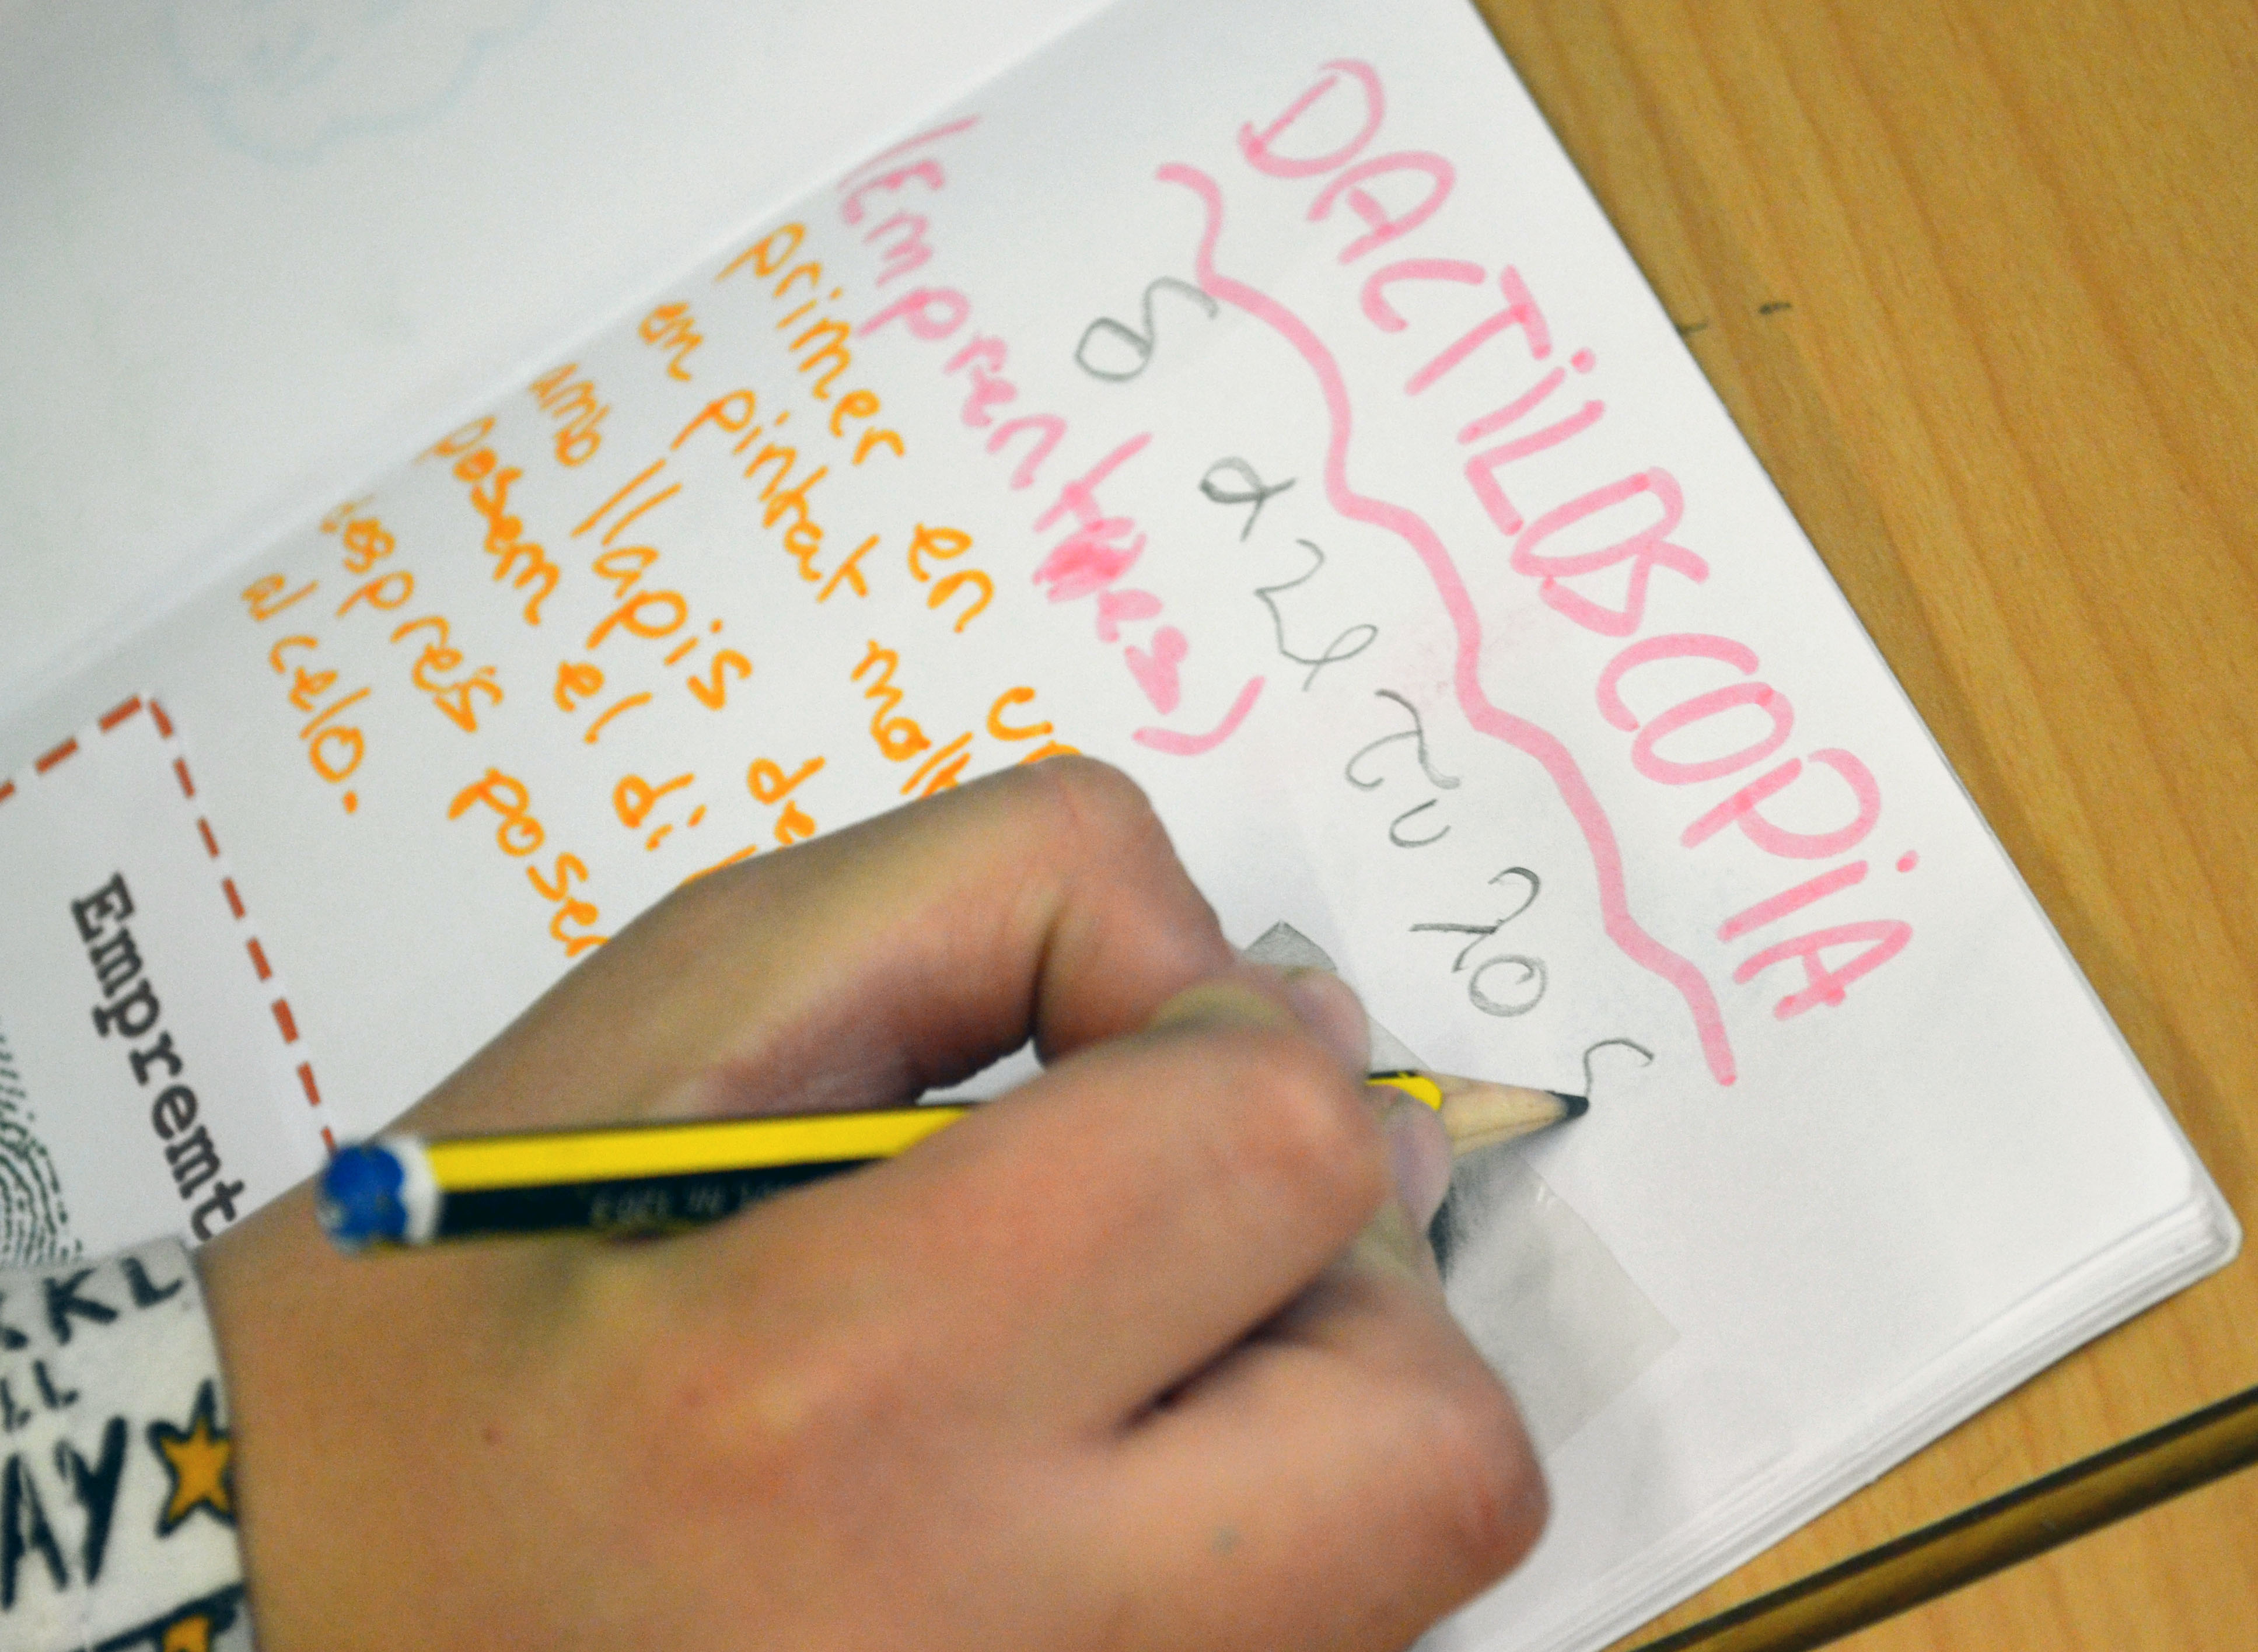 DACTILOSCOPIA
δαχτυλος
(Emprentes)
primer en
em pintat molt
amb llapis de
posem el di
després posem
al celo.
Empremt
KKL
LL
AY